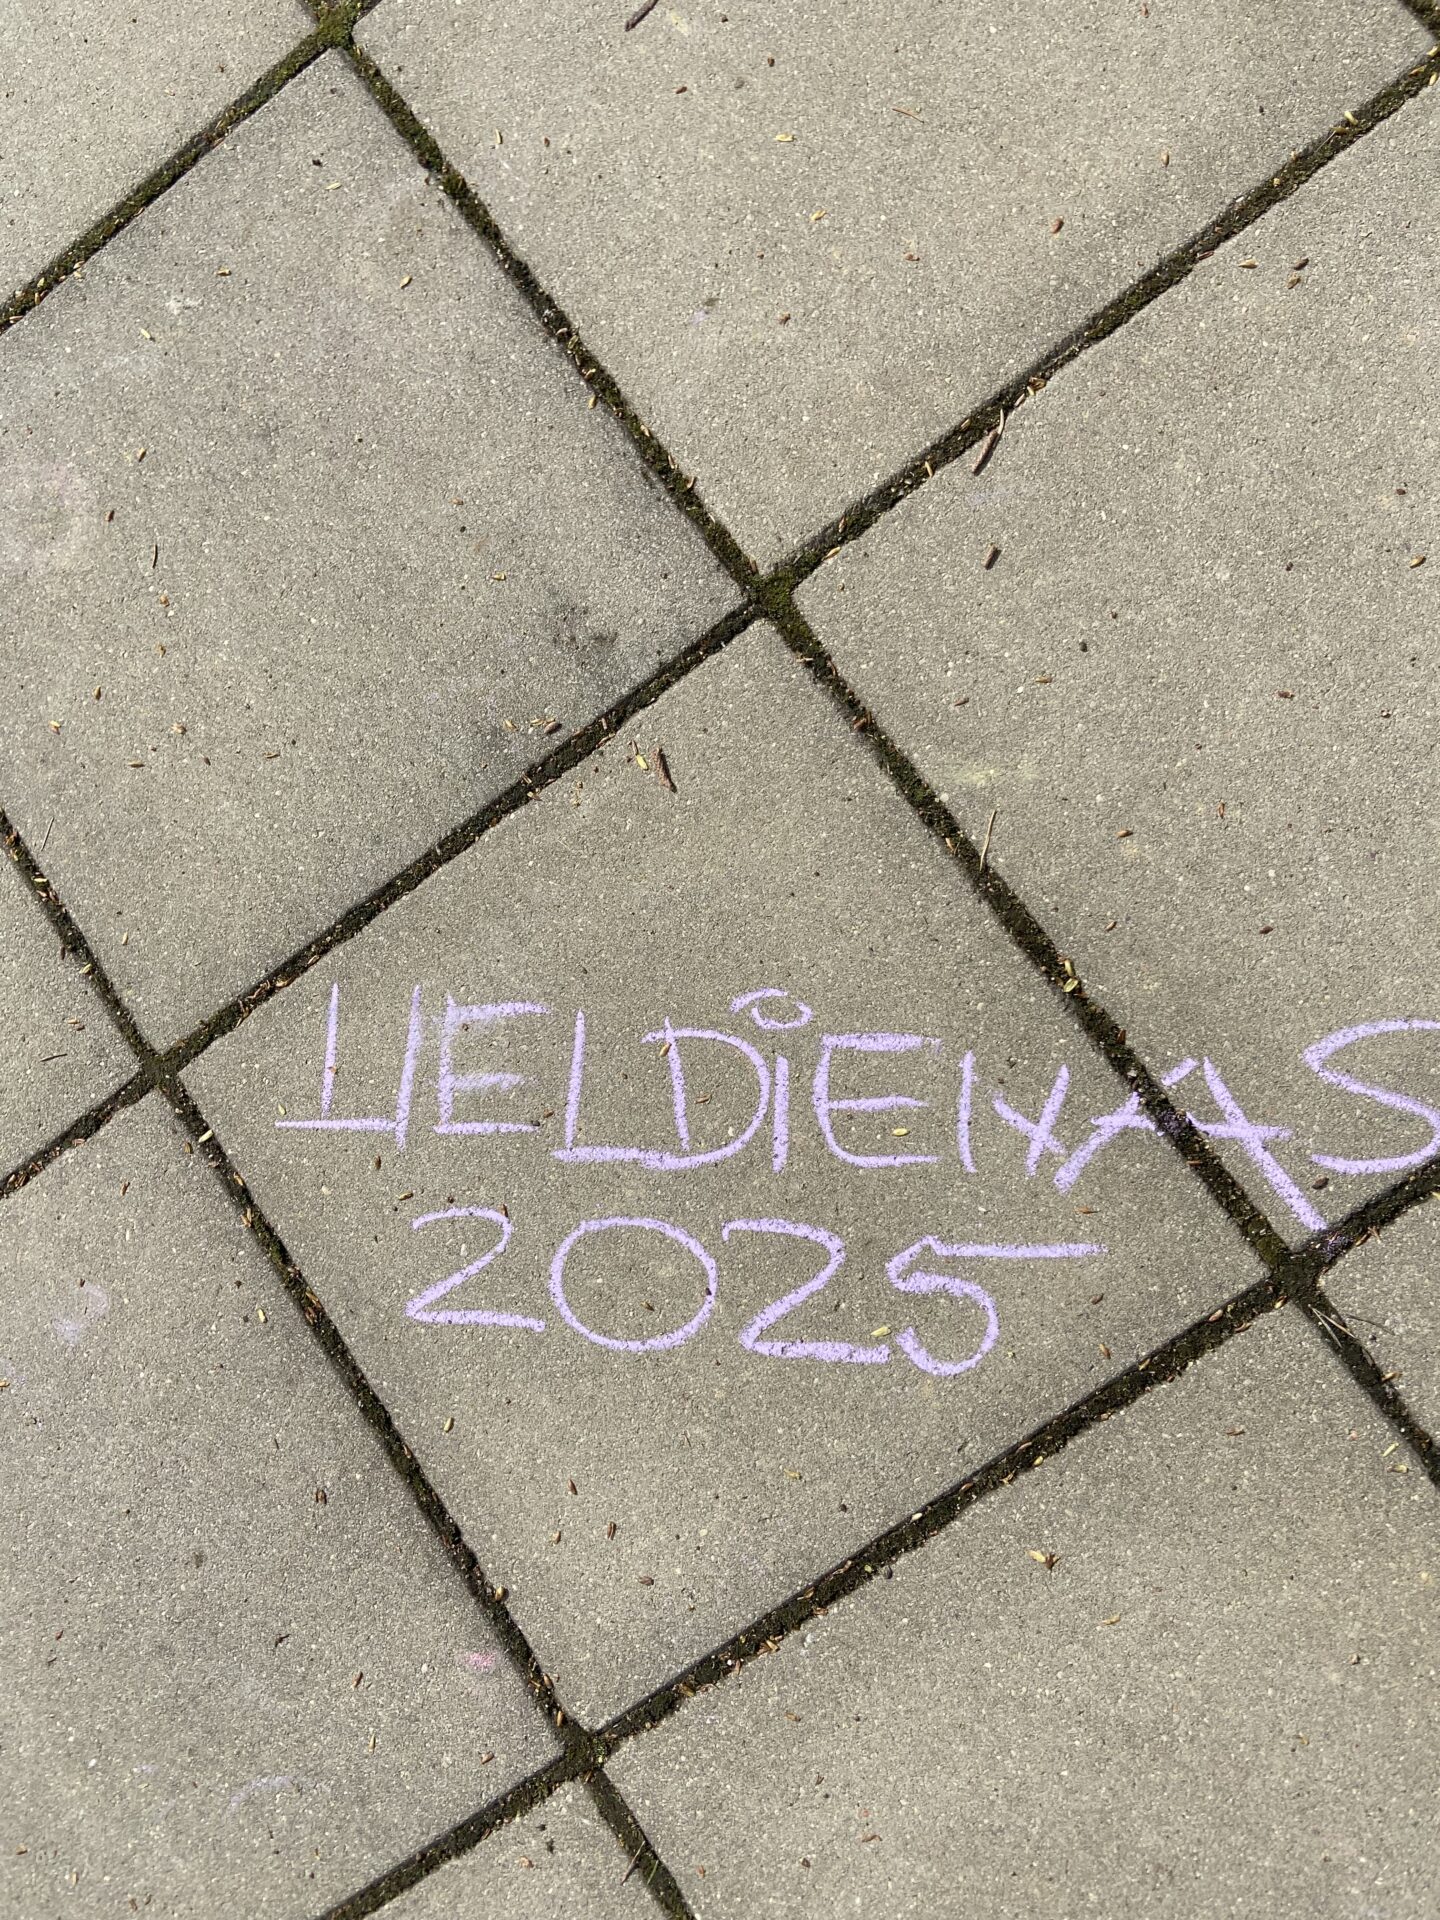 LIELDIENAS
2025